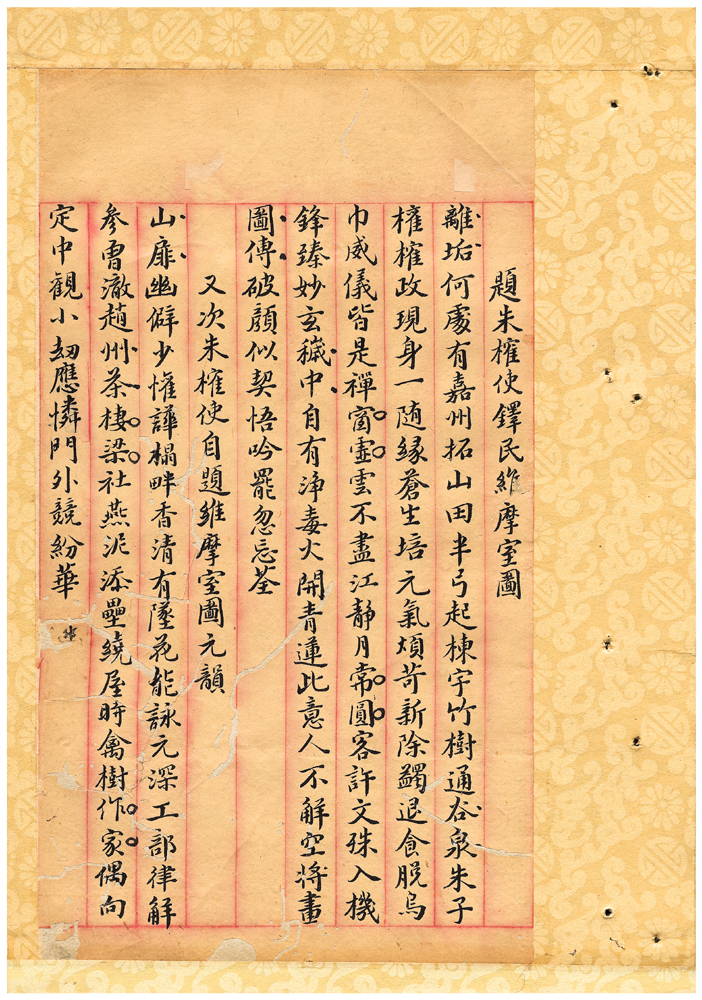 題朱榷使鐸民維摩室圖
離垢何處有嘉州拓山田半弓起棟宇竹樹通谷泉朱子
榷榷政現身一随緣蒼生培元氣煩苛新除蠲退食脱烏
巾威儀皆是禪窗虛雲不盡江靜月常圓客許文殊入機
鋒臻妙玄穢中自有浄毒火開青蓮此意人不解空將畫
圖傳破顏似契悟吟罷忽忘荃
又次朱榷使自題維摩室圖元韻
山扉幽僻少懽譁榻畔香清有墜花能詠元深工部律解
參曹澈趙州茶棲梁社燕泥添壘繞屋時禽樹作家偶向
定中觀小劫應憐門外競紛華